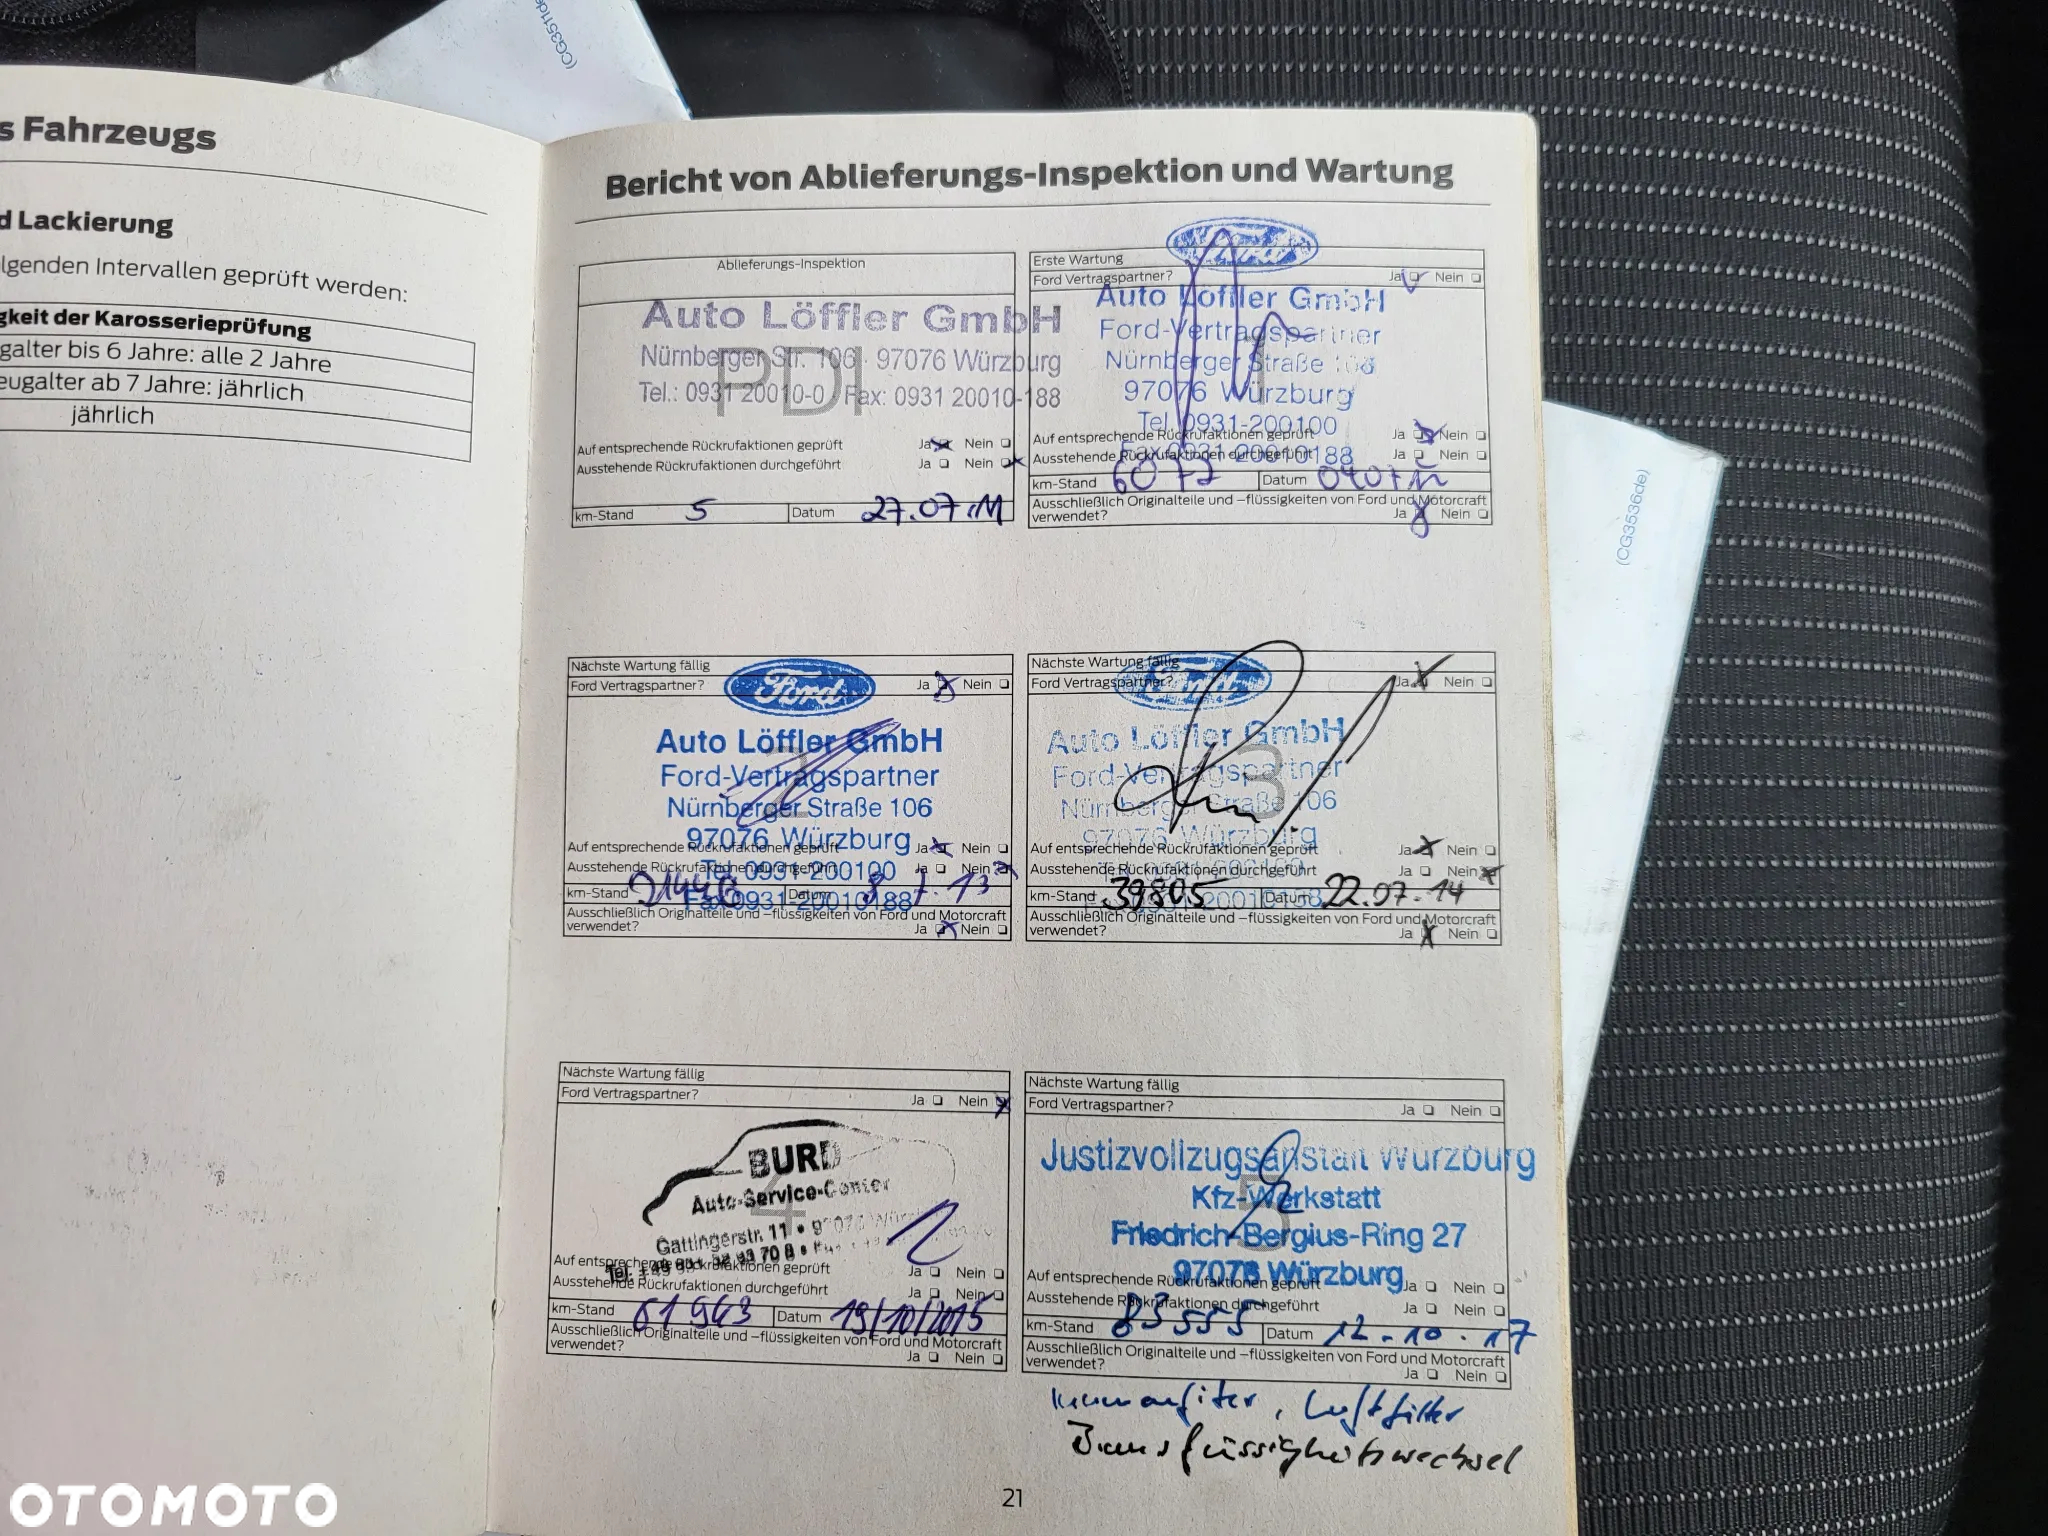 (CG3511de)
s Fahrzeugs
d Lackierung
lgenden Intervallen geprüft werden:
gkeit der Karosserieprüfung
galter bis 6 Jahre: alle 2 Jahre
eugalter ab 7 Jahre: jährlich
jährlich
Bericht von Ablieferungs-Inspektion und Wartung
Ablieferungs-Inspektion
Auto Löffler GmbH
Nürnberger Str. 106 · 97076 Würzburg
PDI
Tel.: 0931 20010-0 Fax: 0931 20010-188
Auf entsprechende Rückrufaktionen geprüft Ja Nein
Ausstehende Rückrufaktionen durchgeführt Ja Nein
km-Stand 5 Datum 27.07.11
Ford
Erste Wartung
Ford Vertragspartner? Ja Nein
Auto Löffler GmbH
Ford-Vertragspartner
Nürnberger Straße 106
1
97076 Würzburg
Tel. 0931-200100
Auf entsprechende Rückrufaktionen geprüft Ja Nein
Fax 0931-20010188
Ausstehende Rückrufaktionen durchgeführt Ja Nein
km-Stand 6072 Datum
Ausschließlich Originalteile und –flüssigkeiten von Ford und Motorcraft
verwendet? Ja Nein
Nächste Wartung fällig
Ford Vertragspartner? Ja Nein
Ford
Auto Löffler GmbH
2
Ford-Vertragspartner
Nürnberger Straße 106
97076 Würzburg
Auf entsprechende Rückrufaktionen geprüft Ja Nein
Ausstehende Rückrufaktionen durchgeführt Ja Nein
Tel. 0931-200100
km-Stand Datum 8.7.13
Fax 0931-20010188
Ausschließlich Originalteile und –flüssigkeiten von Ford und Motorcraft
verwendet? Ja Nein
Nächste Wartung fällig
Ford Vertragspartner? Ja Nein
Ford
Auto Löffler GmbH
3
Ford-Vertragspartner
Nürnberger Straße 106
97076 Würzburg
Auf entsprechende Rückrufaktionen geprüft Ja Nein
Ausstehende Rückrufaktionen durchgeführt Ja Nein
0931-200100
km-Stand 39805 Datum 22.07.14
0931-20010188
Ausschließlich Originalteile und –flüssigkeiten von Ford und Motorcraft
verwendet? Ja Nein
Nächste Wartung fällig
Ford Vertragspartner? Ja Nein
BURD
Auto-Service-Center
4
Gattingerstr. 11 • 97076 Würzburg
Auf entsprechende Rückrufaktionen geprüft Ja Nein
Tel.:
Ausstehende Rückrufaktionen durchgeführt Ja Nein
km-Stand 61963 Datum 19/10/2015
Ausschließlich Originalteile und –flüssigkeiten von Ford und Motorcraft
verwendet? Ja Nein
Nächste Wartung fällig
Ford Vertragspartner? Ja Nein
Justizvollzugsanstalt Würzburg
Kfz-Werkstatt
5
Friedrich-Bergius-Ring 27
97076 Würzburg
Auf entsprechende Rückrufaktionen geprüft Ja Nein
Ausstehende Rückrufaktionen durchgeführt Ja Nein
km-Stand 83555 Datum 12.10.17
Ausschließlich Originalteile und –flüssigkeiten von Ford und Motorcraft
verwendet? Ja Nein
Innenraumfilter, Luftfilter
Bremsflüssigkeitswechsel
21
(CG3536de)
OTOMOTO